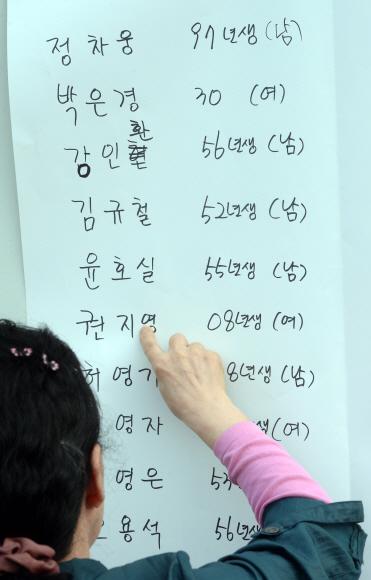 정차웅 97년생 (남)
박은경 30 (여)
강인환 56년생 (남)
김규철 52년생 (남)
윤호실 55년생 (남)
권지영 08년생 (여)
허영기 8년생 (남)
영자 (여)
영은 53
용석 56년생